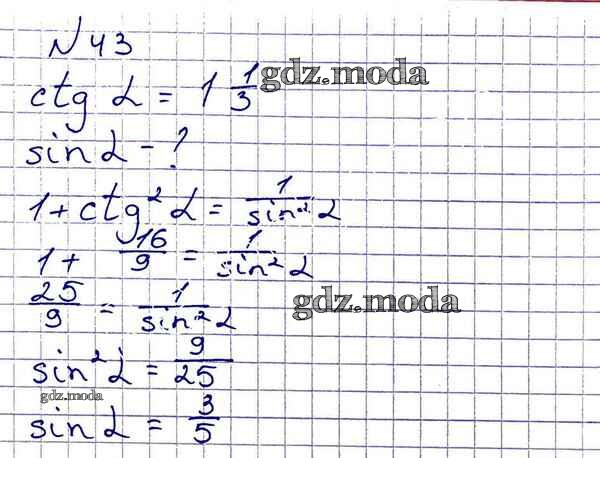 N 43
ctg α = 1 1/3 gdz.moda
sin α - ?
1 + ctg² α = 1/sin² α
1 + 16/9 = 1/sin² α
25/9 = 1/sin² α gdz.moda
sin² α = 9/25
gdz.moda
sin α = 3/5